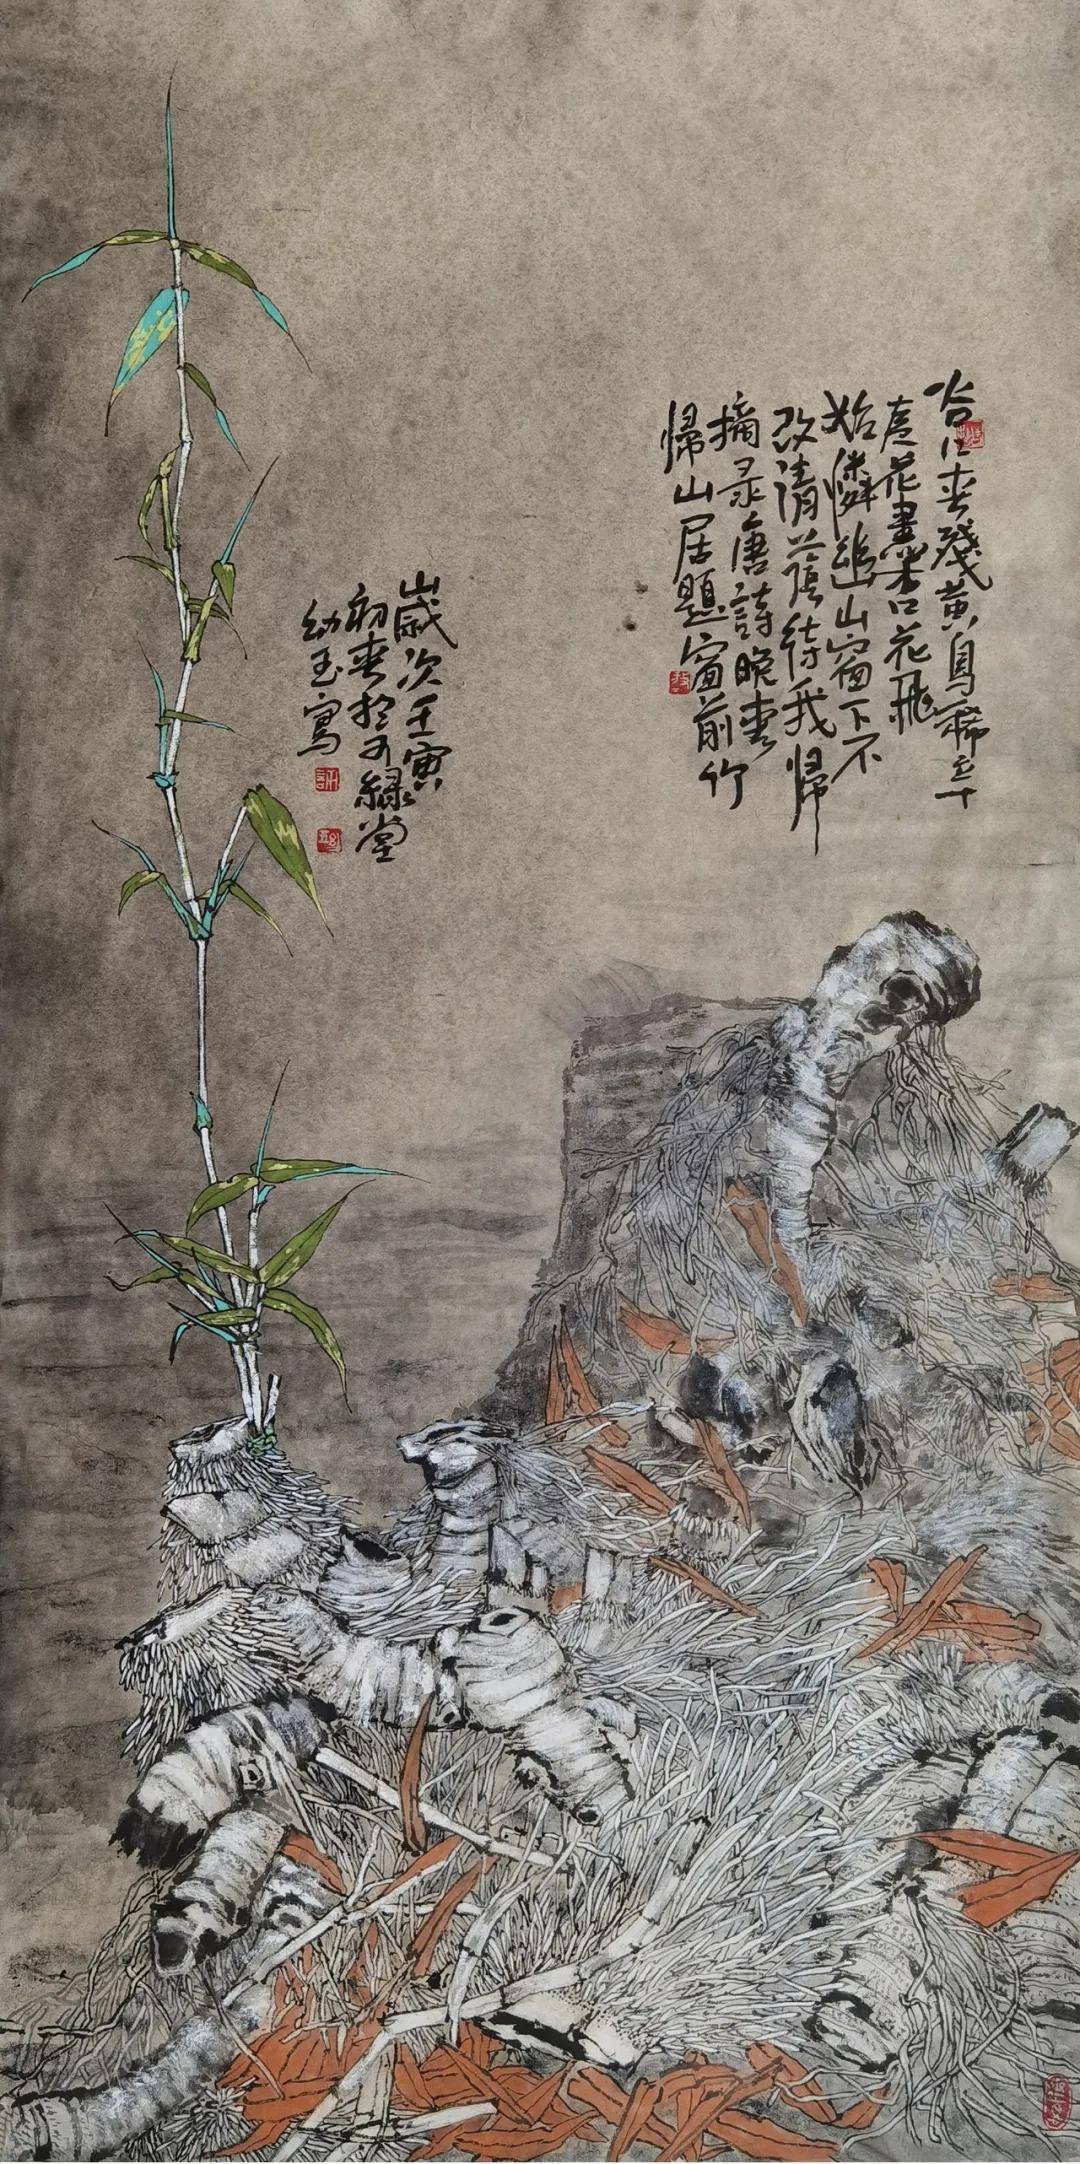 谷口春殘黄鳥稀辛
夷花盡杏花飛
始憐幽山窗下不
改清蔭待我歸
摘录唐詩晚春
歸山居題窗前竹
歲次壬寅
初春於綠堂
幼玉寫